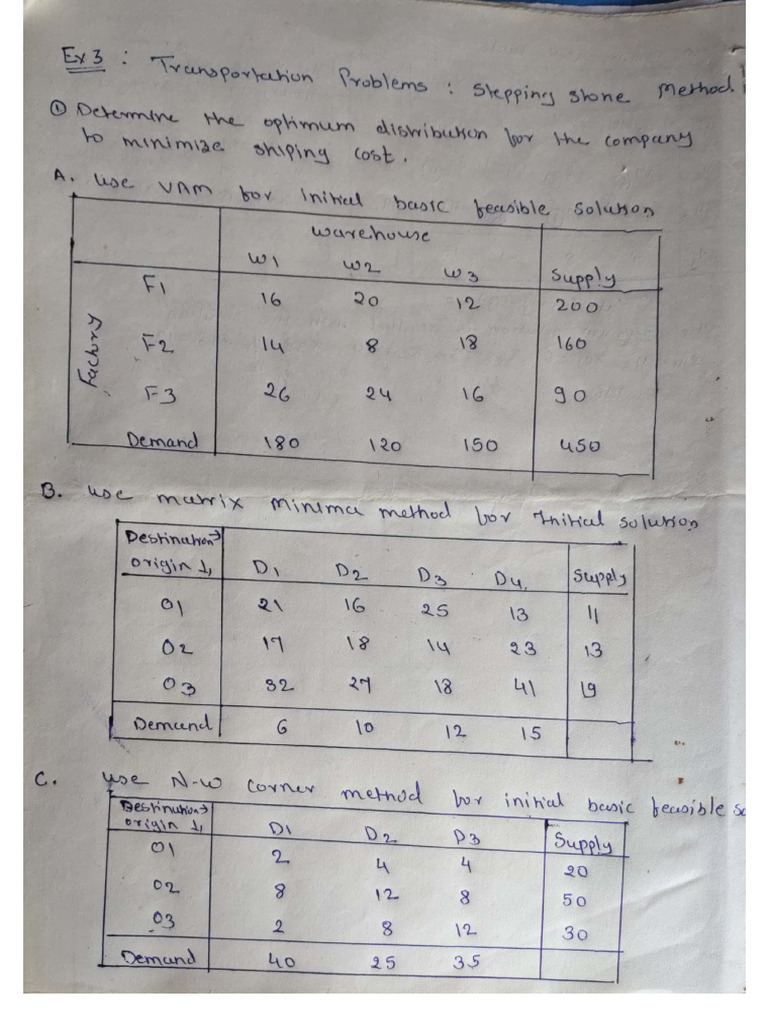 Ex 3 : Transportation Problems : Stepping stone Method.
① Determine the optimum distribution for the company
to minimize shiping cost.
A. use VAM for initial basic feasible solution
Warehouse
W1 W2 W3 Supply
Factory
F1 16 20 12 200
F2 14 8 18 160
F3 26 24 16 90
Demand 180 120 150 450
B. use matrix minima method for Initial solution
Destination→
origin ↓ D1 D2 D3 D4 Supply
O1 21 16 25 13 11
O2 17 18 14 23 13
O3 32 27 18 41 19
Demand 6 10 12 15
C. use N-W corner method for initial basic feasible
Destination→
origin ↓ D1 D2 D3 Supply
O1 2 4 4 20
O2 8 12 8 50
O3 2 8 12 30
Demand 40 25 35